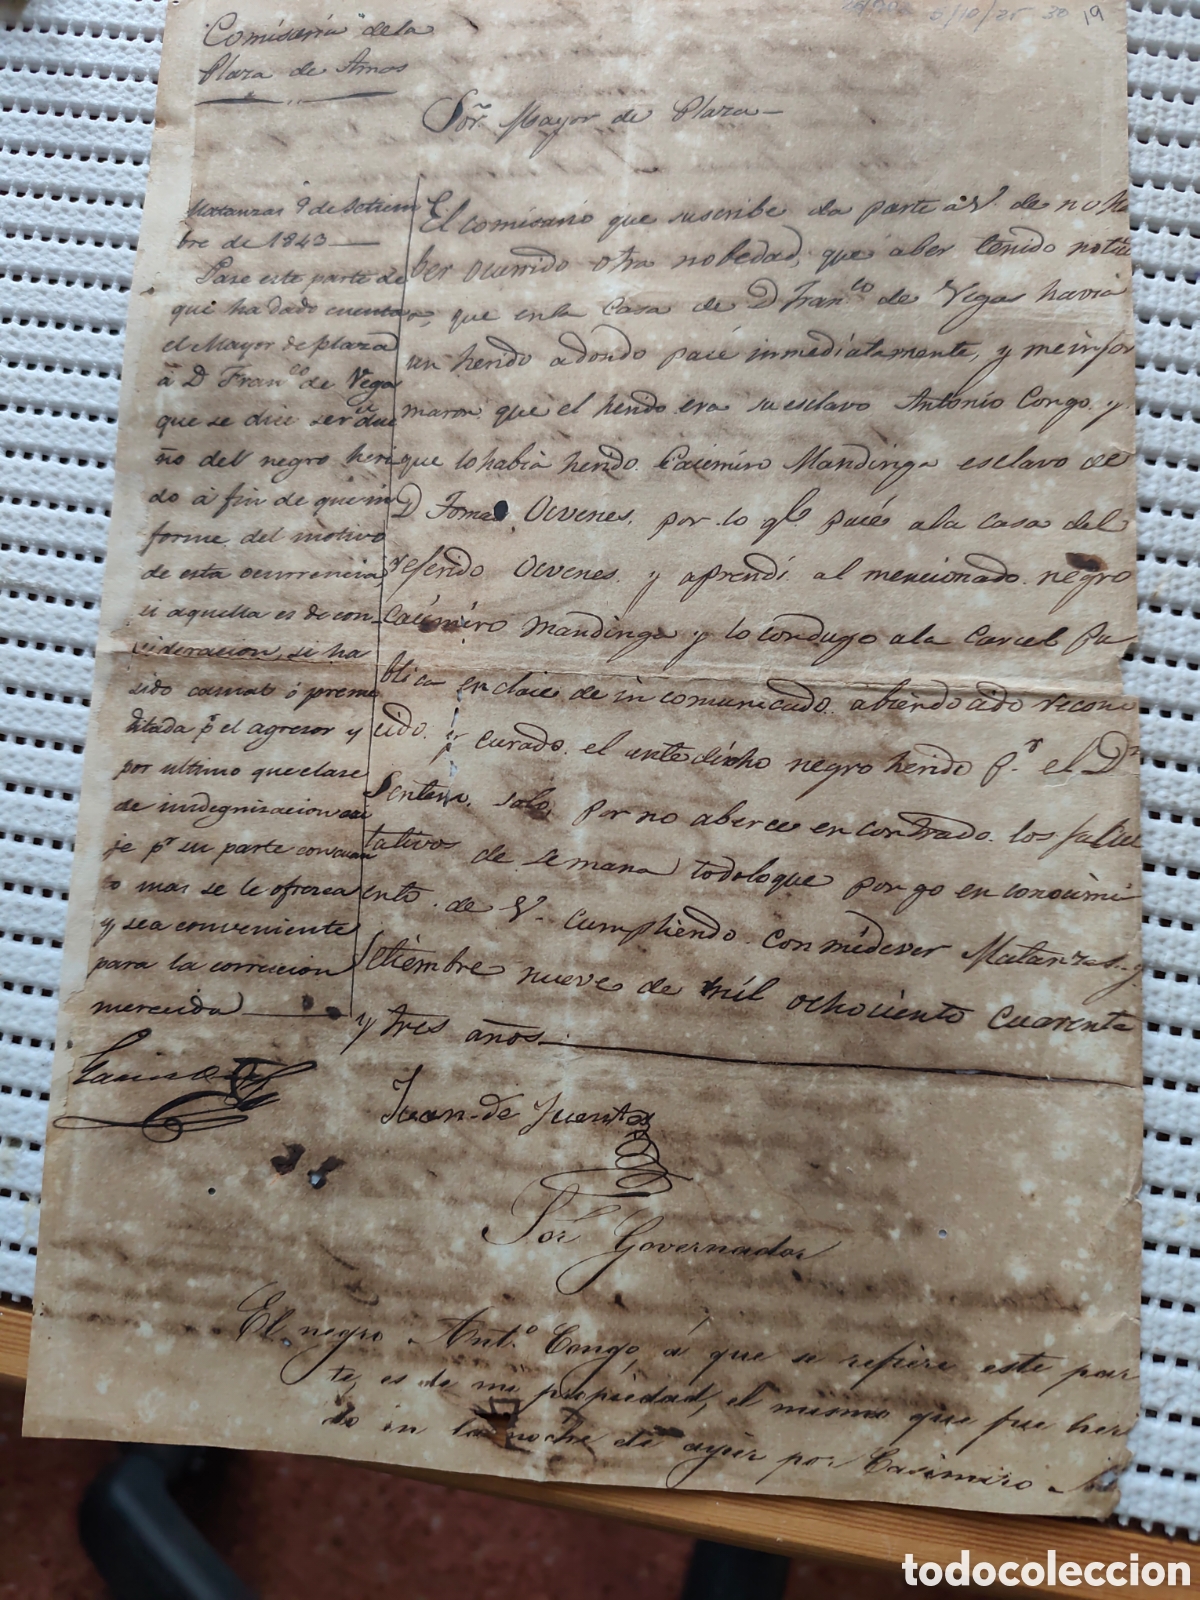 5/10/25 30 19
Comisaria de la
Plaza de Armas
Sōr. Mayor de Plaza
Matanzas 9 de Setiem
bre de 1843
Pase este parte de
que ha dado cuenta
el Mayor de plaza
á D Fran.co de Vega
que se dice ser due
ño del negro heri
do á fin de que in
forme del motivo
de esta ocurrencia
si aquella es de con
cideracion, si ha
sido casual ó preme
ditada pr el agresor y
por ultimo que clase
de indegnisacion exi
je pr su parte con cuan
to mas se le ofresca
y sea conveniente
para la correccion
merecida
El comisario que suscribe da parte á V. de no ha
ber ocurrido otra nobedad, que aber tenido notici
a, que en la casa de D Fran.co de Vegas havia
un herido adondo pacé inmediatamente, y me infor
maron que el herido era su esclavo Antonio Congo y
que lo habia herido Casimiro Mandinga esclavo de
D Tomas Ocvenes, por lo ql. pacé a la casa del
referido Ocvenes y aprendi al mencionado negro
Casimiro Mandinga y lo condugo a la Carcel Pu
blica en clace de in comunicado abiendo cido recono
cido y curado el ante dicho negro herido p.r el Dn
Sentena, solo, por no aberce en contrado los facul
tativos de semana todo lo que pongo en conocimi
ento de V. cumpliendo con mi dever Matanzas y
Setiembre nueve de mil ochociento cuarenta
y tres años
Juan de Fuentes
Sōr Governador
El negro Ant.o Congo, á que se refiere este par
te, es de mi propiedad, el mismo que fue heri
do en la noche de ayer por Casimiro
todocoleccion